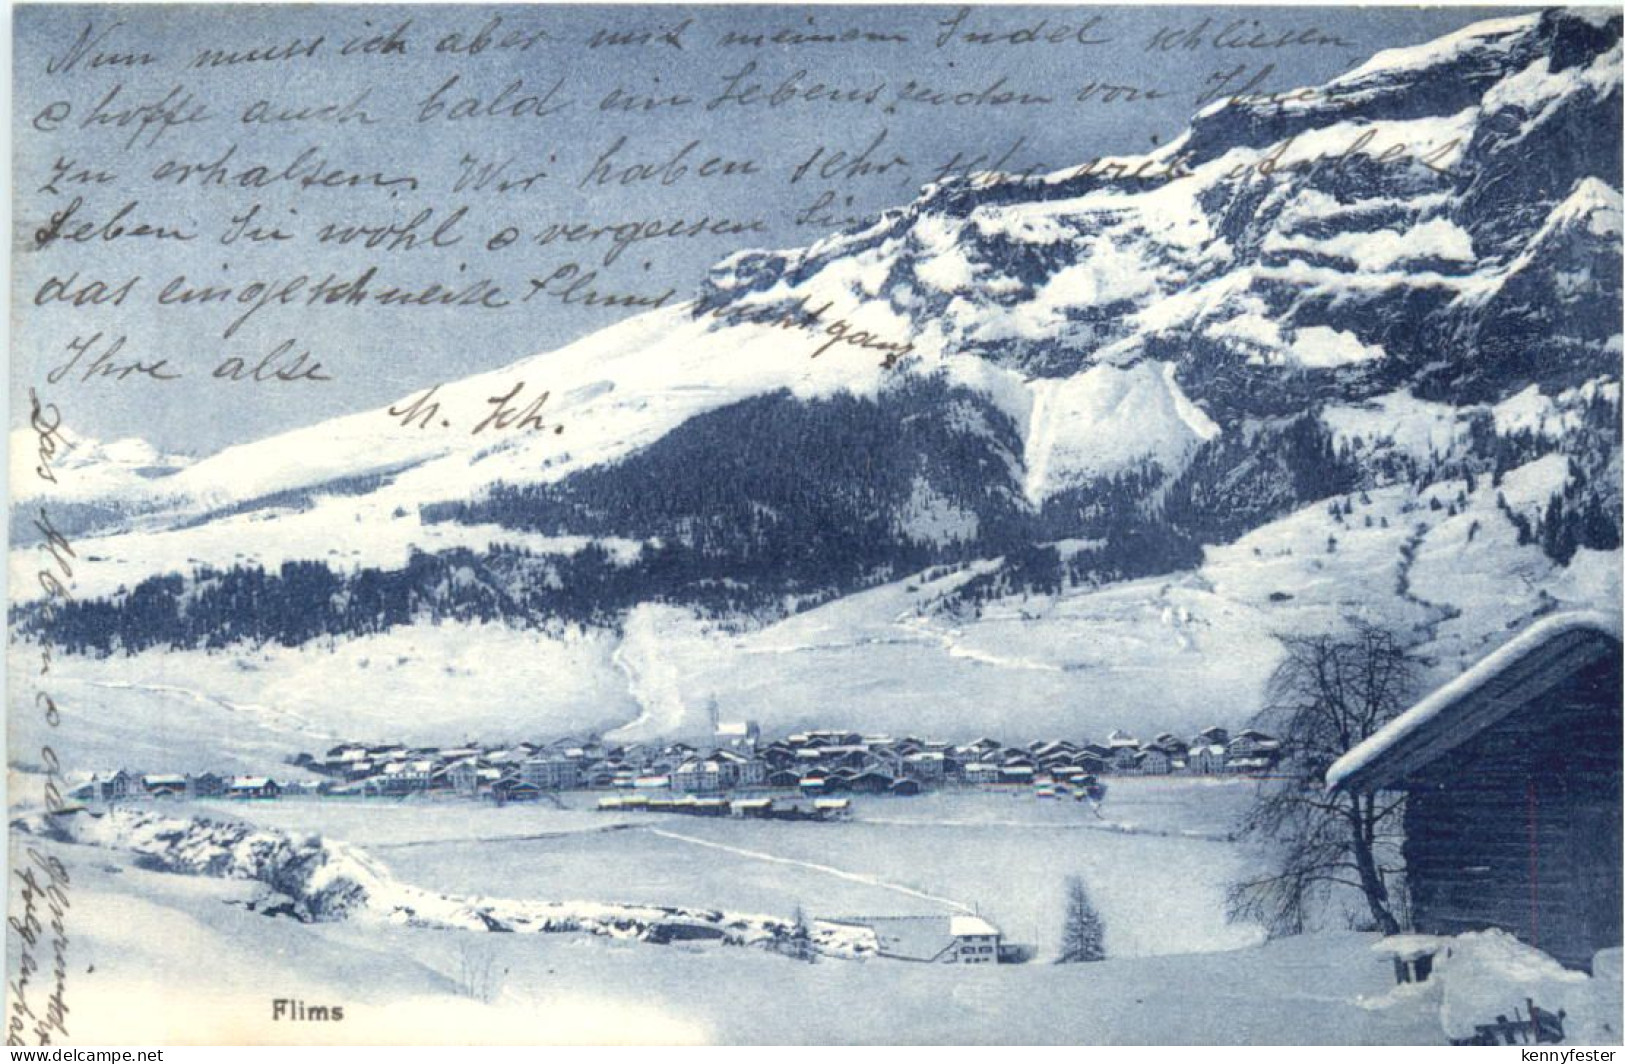 Nun muss ich aber mit meinem Sudel schliesen
& hoffe auch bald ein Lebenszeichen von Ihnen
zu erhalten. Wir haben sehr, sehr viel Arbeit
Leben Sie wohl & vergessen Sie
das eingeschneite Flims nicht ganz
Ihre alte
M. Sch.
Das Album &
Flims
www.delcampe.net
kennyfester